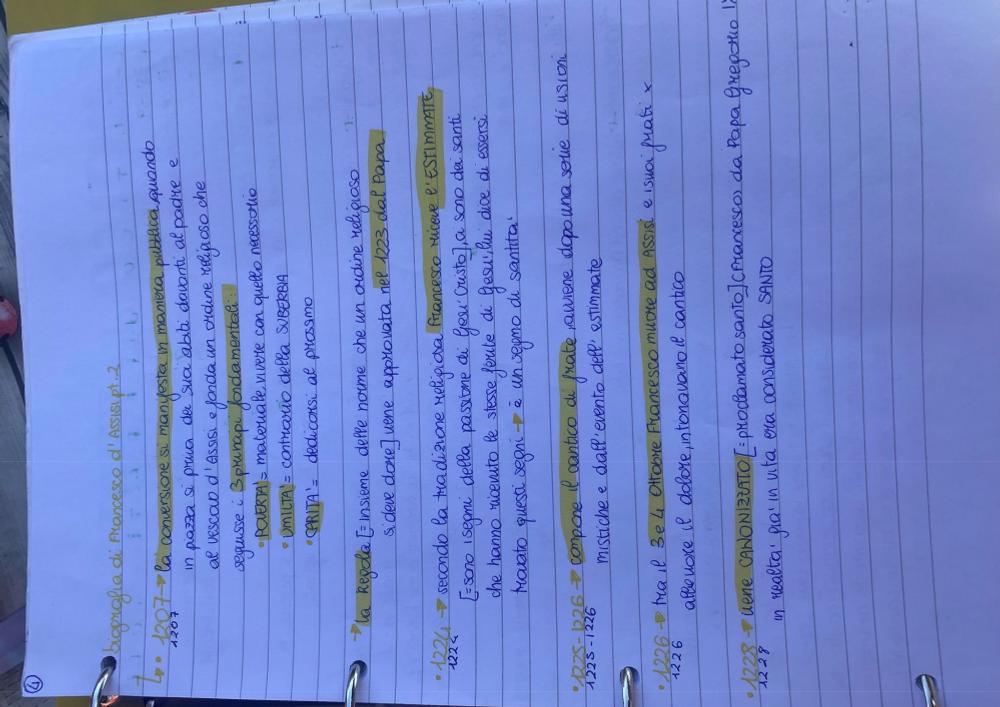 4
biografia di Francesco d'Assisi pt.2
• 1207 → la conversione si manifesta in maniera pubblica quando
1207
in pazza si priva dei suoi abiti davanti al padre e
al vescovo d'Assisi e fonda un ordine religioso che
seguisse i 3 principi fondamentali:
• POVERTA' = materiale, vivere con quello necessario
• UMILTA' = contrario della SUBERBIA
• CARITA' = dedicarsi al prossimo
→ la Regola [= insieme delle norme che un ordine religioso
si deve dare] viene approvata nel 1223 dal Papa
• 1224 → secondo la tradizione religiosa Francesco riceve l'ESTIMMATE
1224
[= sono i segni della passione di Gesù Cristo], ci sono dei santi
che hanno ricevuto le stesse ferite di Gesù, lui dice di essersi
trovato questi segni → è un segno di santità
• 1225-1226 → compone il cantico di frate, avviene dopo una serie di visioni
1225-1226
mistiche e dall'evento dell'estimmate
• 1226 → tra il 3 e 4 Ottobre Francesco muore ad Assisi e i suoi frati x
1226
alleviare il dolore, intonavano il cantico
• 1228 → viene CANONIZZATO [= proclamato santo] (Francesco) da Papa Gregorio IX
1228
in realtà già in vita era considerato SANTO